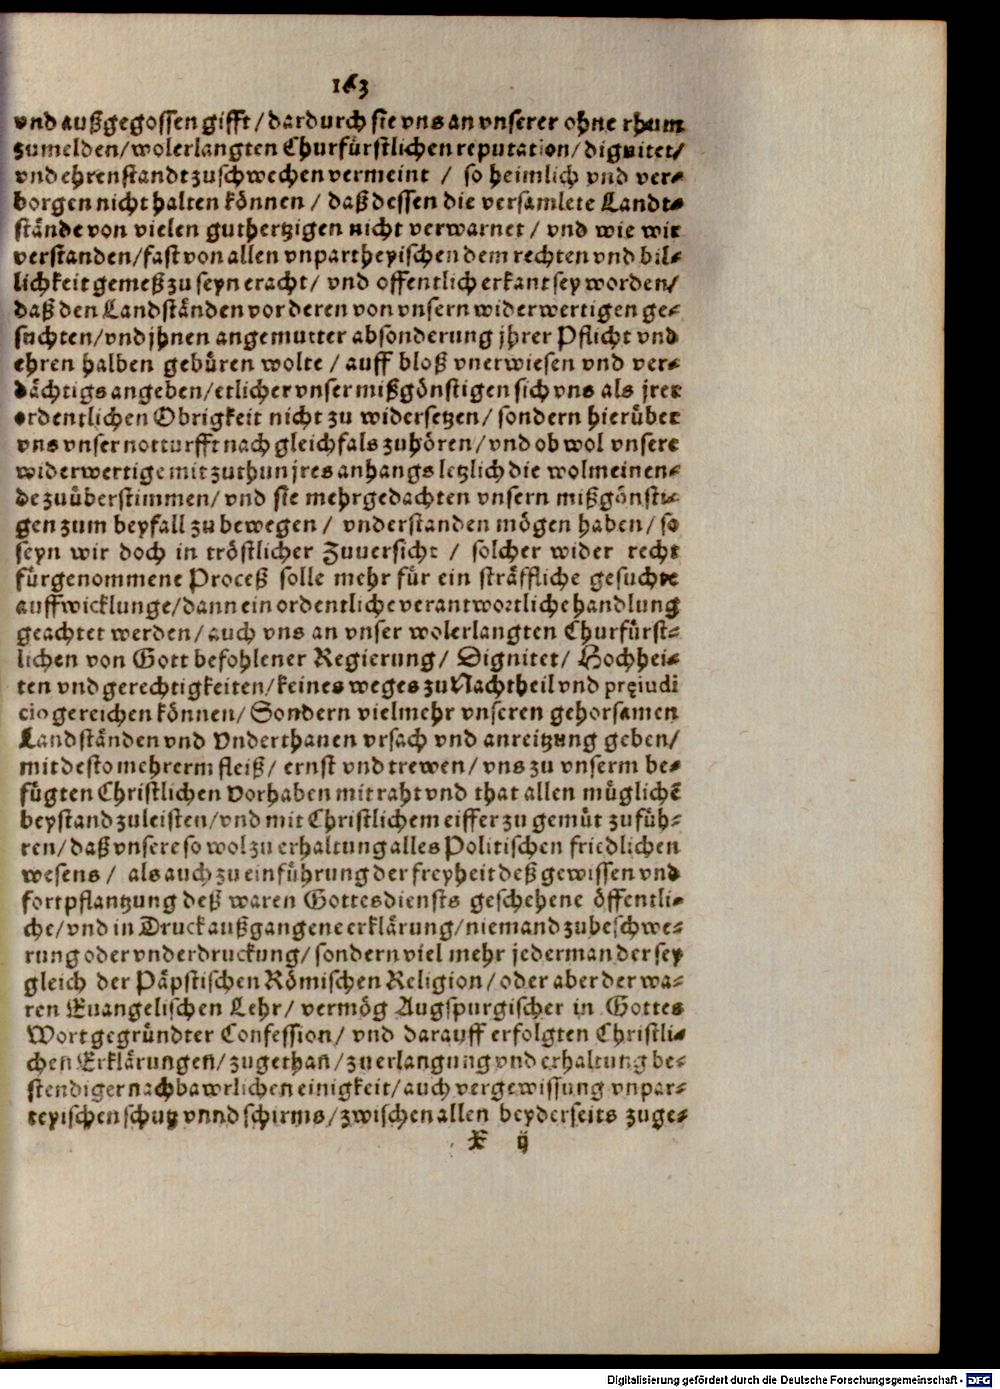 163
vnd außgegossen gifft/dardurch sie vns an vnserer ohne rhum
zumelden/wolerlangten Churfürstlichen reputation/dignitet/
vnd ehrenstandt zuschwechen vermeint / so heimlich vnd ver-
borgen nicht halten können / daß dessen die versamlete Landt-
stände von vielen guthertzigen nicht verwarnet / vnd wie wir
verstanden/fast von allen vnpartheyischen dem rechten vnd bil-
lichkeit gemeß zu seyn eracht/ vnd offentlich erkant sey worden/
daß den Landständen vor deren von vnsern widerwertigen ge-
suchten/vnd jhnen angemutter absonderung jhrer Pflicht vnd
ehren halben gebüren wolte / auff bloß vnerwiesen vnd ver-
dächtigs angeben/etlicher vnser mißgönstigen sich vns als jrer
ordentlichen Obrigkeit nicht zu widersetzen/ sondern hierüber
vns vnser notturfft nach gleichfals zuhören/ vnd ob wol vnsere
widerwertige mit zuthun jres anhangs letzlich die wolmeinen-
de zuüberstimmen/ vnd sie mehrgedachten vnsern mißgönsti-
gen zum beyfall zu bewegen / vnderstanden mögen haben/ so
seyn wir doch in tröstlicher Zuuersicht / solcher wider recht
fürgenommene Proceß solle mehr für ein sträffliche gesuchte
auffwicklunge/dann ein ordentliche verantwortliche handlung
geachtet werden/ auch vns an vnser wolerlangten Churfürst-
lichen von Gott befohlener Regierung/ Dignitet/ Hochhei-
ten vnd gerechtigkeiten/keines weges zu Nachtheil vnd pręiudi
cio gereichen können/ Sondern vielmehr vnseren gehorsamen
Landständen vnd Vnderthanen vrsach vnd anreitzung geben/
mit desto mehrerm fleiß/ ernst vnd trewen/ vns zu vnserm be-
fügten Christlichen Vorhaben mit raht vnd that allen müglichẽ
beystand zuleisten/vnd mit Christlichem eiffer zu gemüt zufüh-
ren/daß vnsere so wol zu erhaltung alles Politischen friedlichen
wesens / als auch zu einführung der freyheit deß gewissen vnd
fortpflantzung deß waren Gottesdiensts geschehene öffentli-
che/vnd in Druck außgangene erklärung/niemand zubeschwe-
rung oder vnderdruckung/ sondern viel mehr jederman der sey
gleich der Päpstischen Römischen Religion/ oder aber der wa-
ren Euangelischen Lehr/ vermög Augspurgischer in Gottes
Wort gegründter Confession/ vnd darauff erfolgten Christli-
chen Erklärungen/ zugethan/ zu erlangung vnd erhaltung be-
stendiger nachbawrlichen einigkeit/ auch vergewissung vnpar-
teyischen schutz vnnd schirms/zwischen allen beyderseits zuge-
X ij
Digitalisierung gefördert durch die Deutsche Forschungsgemeinschaft - DFG